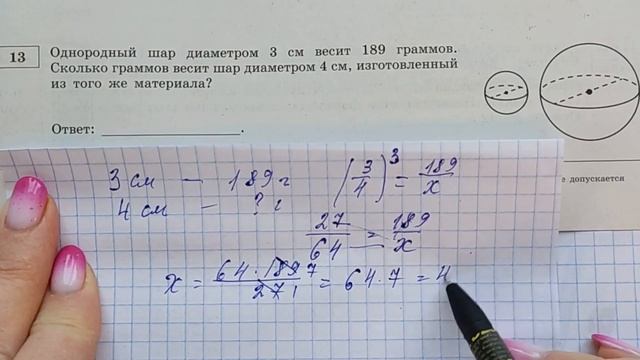 13 Однородный шар диаметром 3 см весит 189 граммов.
Сколько граммов весит шар диаметром 4 см, изготовленный
из того же материала?
Ответ: ____________________.
е допускается
3 см — 189 г
4 см — ? г
(3/4)³ = 189/x
27/64 = 189/x
x = 64 · 189 7 / 27 1 = 64 · 7 = 4